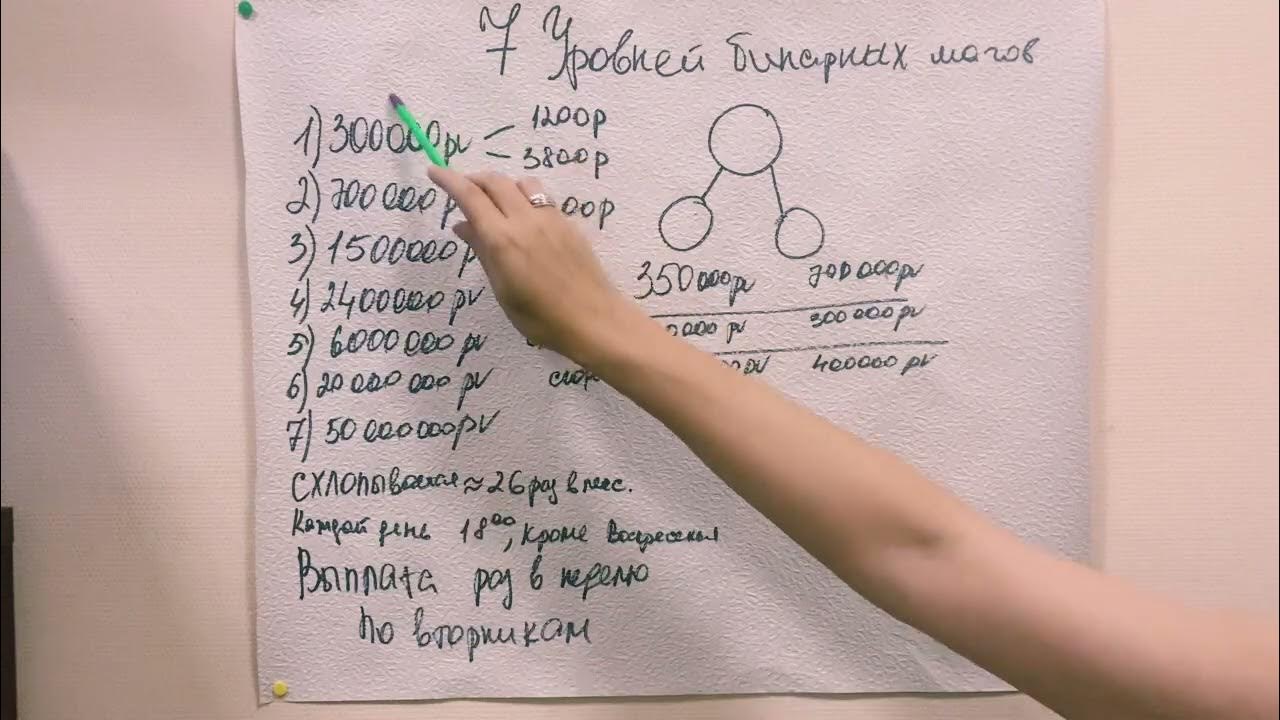 7 Уровней бинарных магов
1) 300000pv
1200р
3800р
2) 700000p
00р
3) 1500000p
4) 2400000 pv
5) 6000000 pv
6) 20 000 000 pv
7) 50 000000pv
350000pv 700000pv
0000 pv 300000pv
pv 400000 pv
схлопывается ≈ 26 раз в мес.
Каждый день 18⁰⁰, кроме Воскресенья
Выплата раз в неделю
по вторникам